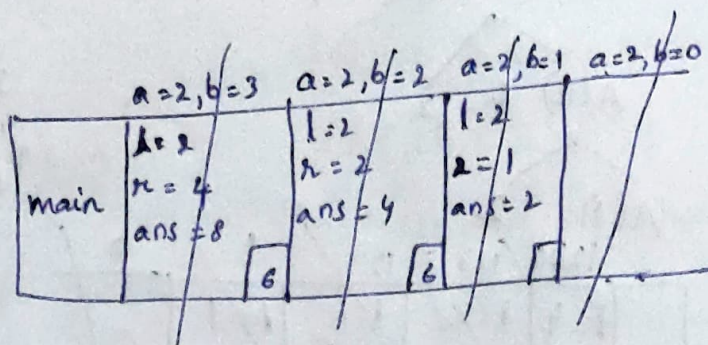 a=2, b=3 a=2, b=2 a=2, b=1 a=2, b=0
main
l=2
r=4
ans=8
6
l=2
r=2
ans=4
6
l=2
r=1
ans=2